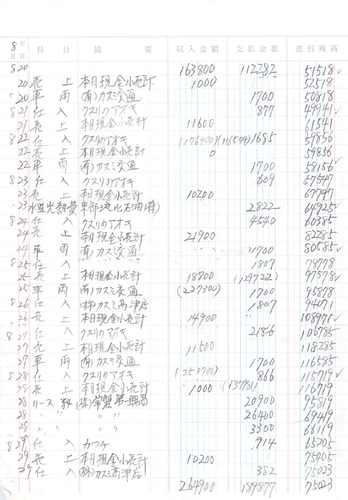 8年 月 日 科目 摘要 収入金額 支払金額 差引残高
8 20 163800 112282 51518
20 売上 本日現金小売計 1000 52518
20 車両 (有)カスミ交通 1700 50818
8 21 仕入 クスリのアオキ 877 49941
21 売上 本日現金小売計 11600 61541
8 22 仕入 クスリのアオキ (176400) (115544) 1685 59856
22 売上 本日現金小売計 0 59856
22 車両 (有)カスミ交通 1700 58156
8 23 仕入 クスリのアオキ 609 57547
23 売上 本日現金小売計 10200 67747
23 水道光熱費 2822 64925
8 24 仕入 クスリのアオキ 4540 60385
24 売上 本日現金小売計 21900 82285
24 車両 (有)カスミ交通 1700 80585
8 25 仕入 〃 1807 78778
25 売上 本日現金小売計 18800 (129722) 97578
25 車両 (有)カスミ交通 (227300) 1700 95878
8 26 仕入 (株)カスミ高津店 1807 94071
26 売上 本日現金小売計 14900 108971
8 27 仕入 クスリのアオキ 2186 106785
27 売上 本日現金小売計 11500 118285
27 車両 (有)カスミ交通 1700 116585
8 28 仕入 クスリのアオキ (253700) 866 115719
28 売上 本日現金小売計 1000 (137781) 116719
28 リース料 (株)常盤第一興商 20900 95819
28 〃 〃 26400 69419
28 〃 〃 3300 66119
8 29 仕入 カワチ 914 65205
29 売上 本日現金小売計 10200 75405
29 仕入 (株)カスミ高津店 382 75023
264900 189877 75023